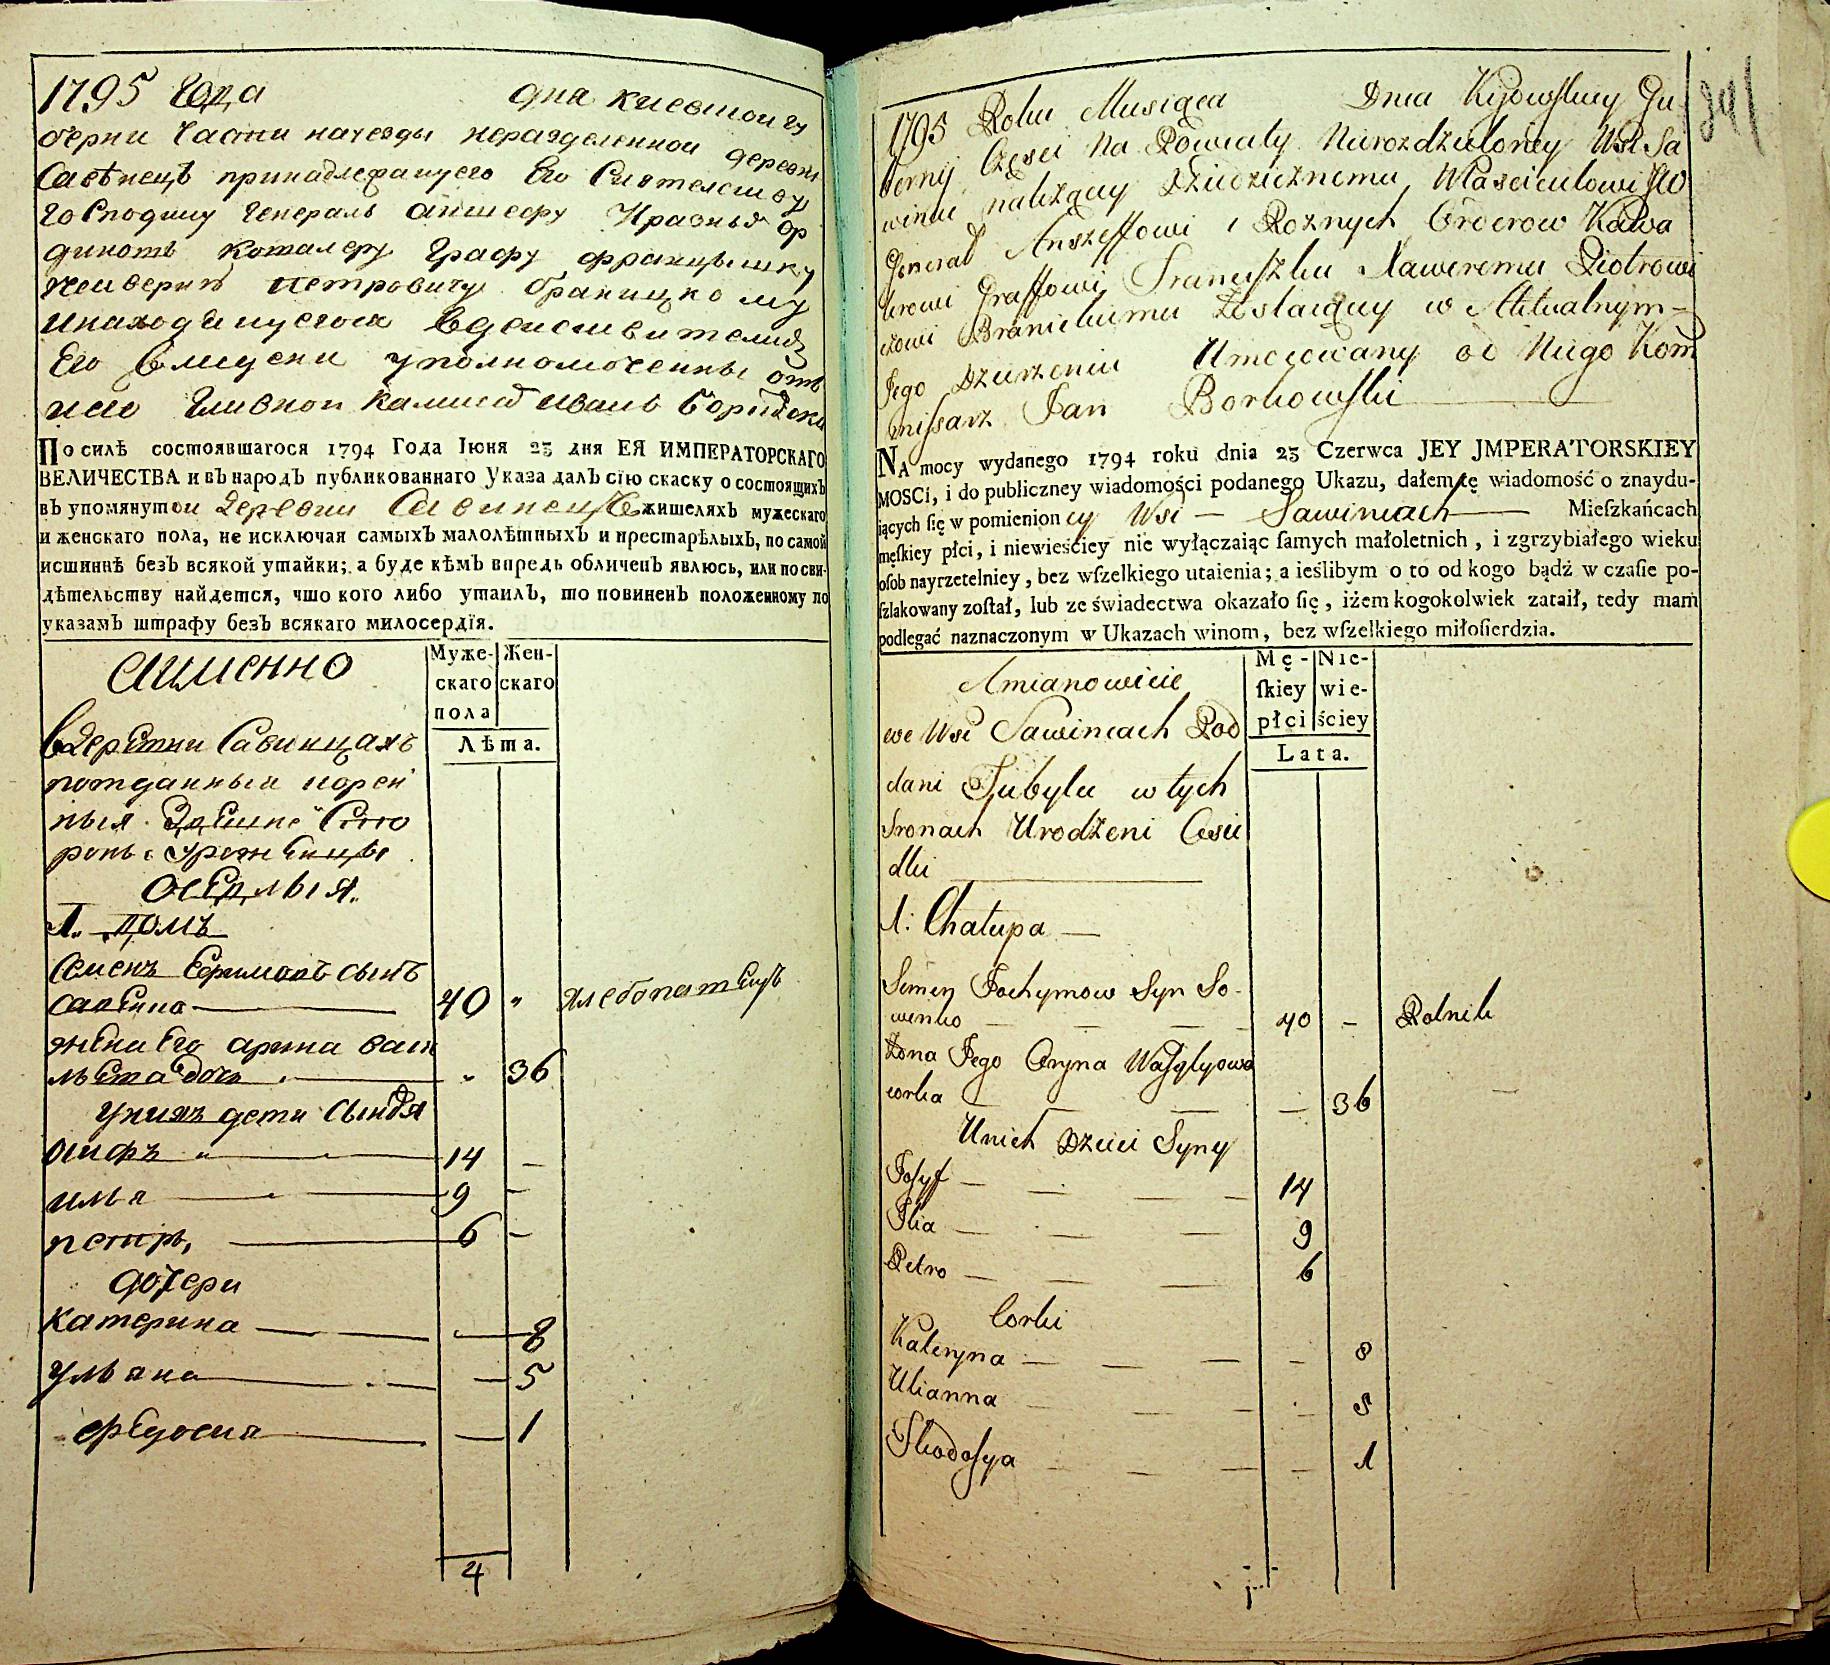 1795 года дня киевской гу
берни части науезды неразделенной деревни
Савѣнецъ принадлежащего Его Сиятелству
Господину Генералъ аншефу Иразныя ор
диновъ кавалеру Графу францышку
Петровичу браницкому
инаходящегося вдействителне
Его уполномоченны отъ
него Главной камисаръ иванъ борковски
По силѣ состоявшагося 1794 Года Іюня 23 дня ЕЯ ИМПЕРАТОРСКАГО
ВЕЛИЧЕСТВА и въ народъ публикованнаго Указа далъ сію скаску о состоящихъ
въ упомянутои деревни Савинецъ жителяхъ мужескаго
и женскаго пола, не исключая самыхъ малолѣтныхъ и престарѣлыхъ, по самой
истиннѣ безъ всякой утайки; а буде кѣмъ впредь обличенъ явлюсь, или по сви-
дѣтельству найдется, что кого либо утаилъ, то повиненъ положенному по
указамъ штрафу безъ всякаго милосердїя.
аименно
Муже-
скаго
пола
Жен-
скаго
Лѣта.
вдеревни Савинцахъ
потданныи корен
ныя здешне Сто
роны урожженцы
оседлыя.
1. домъ
Семенъ Ефимовъ сынъ
савенко 40 " хлебопатецъ
жена Его арина васи
льева дочь " 36
унихъ дети Сыновя
осифъ 14 —
илья 9 —
петръ, 6 —
дочери
катерина 8
ульяна 5
феодосия 1
4
1795 Roku Miesiąca Dnia Kijowskiey Gu
bernij Części Na Powiaty Nierozdzieloney Wsi Sa
winiec należącey Dziedzicznemu Właścicielowi JW
Generał Anszeffowi i Roznych Orderow Kawa
lerowi Graffowi Franciszku Xaweremu Piotrowi
czowi Branickiemu Zostaiącey w Aktualnym
Jego Dzierżeniu Umocowany od Niego Kom
missarz Jan Borkowski
NA mocy wydanego 1794 roku dnia 23 Czerwca JEY JMPERATORSKIEY
MOSCi, i do publiczney wiadomości podanego Ukazu, dałem tę wiadomość o znaydu-
iących się w pomienioncy Wsi — Sawincach — Mieſzkańcach
męſkiey płci, i niewieściey nie wyłączaiąc ſamych małoletnich, i zgrzybiałego wieku
oſob nayrzetelniey, bez wſzelkiego utaienia; a ieślibym o to od kogo bądź w czaſie po-
ſzlakowany zoſtał, lub ze świadectwa okazało ſię, iżem kogokolwiek zataił, tedy mam
podlegać naznaczonym w Ukazach winom, bez wſzelkiego miłoſierdzia.
Amianowicie
Mę-
ſkiey
płci
Nie-
wie-
ściey
Lata.
we Wsi Sawincach Pod
dani Tubylce w tych
Stronach Urodzeni Osie
dli
1: Chałupa —
Semen Jochymow Syn So-
wenko 40 — Rolnik
Żona Jego Oryna Wasylyowa
corka — 36
Unich Dzieci Syny
Josyf 14
Ilia 9
Petro 6
Corki
Kateryna 8
Ulianna 5
Fhodosya 1